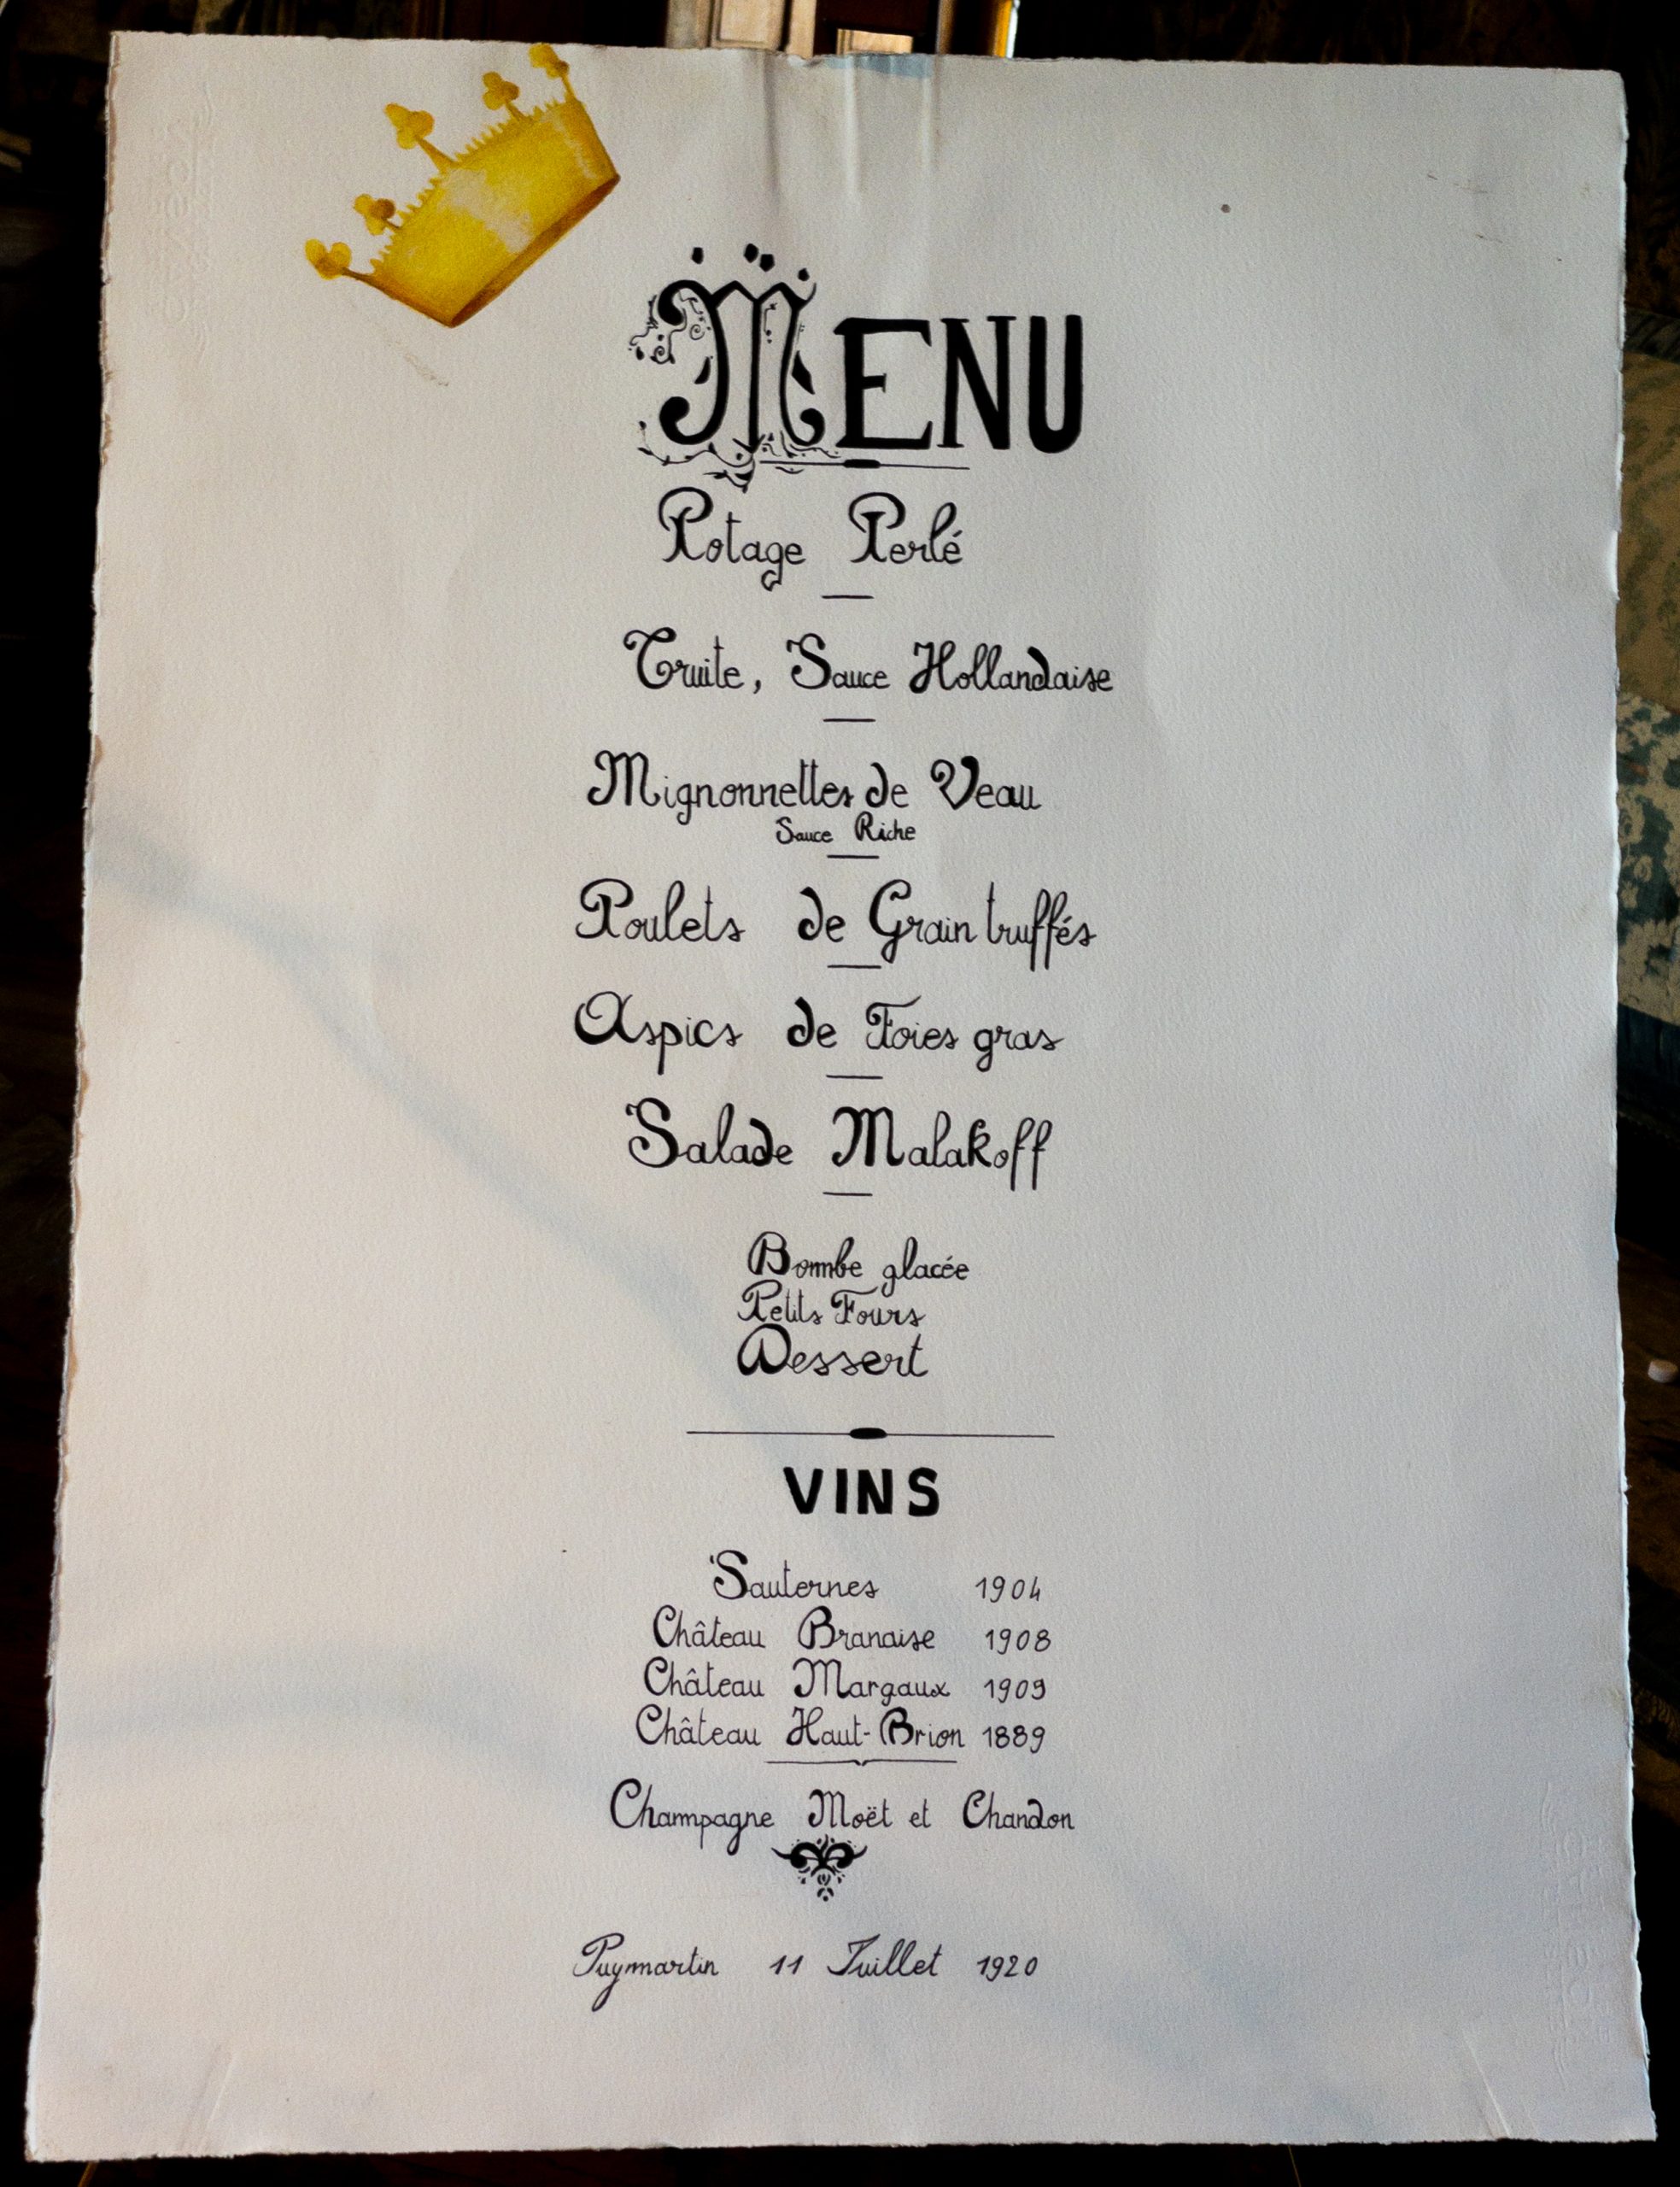 MENU
Potage Perlé
Truite, Sauce Hollandaise
Mignonnettes de Veau
Sauce Riche
Poulets de Grain truffés
Aspics de Foies gras
Salade Malakoff
Bombe glacée
Petits Fours
Dessert
VINS
Sauternes 1904
Château Branaise 1908
Château Margaux 1909
Château Haut-Brion 1889
Champagne Moët et Chandon
Puymartin 11 Juillet 1920